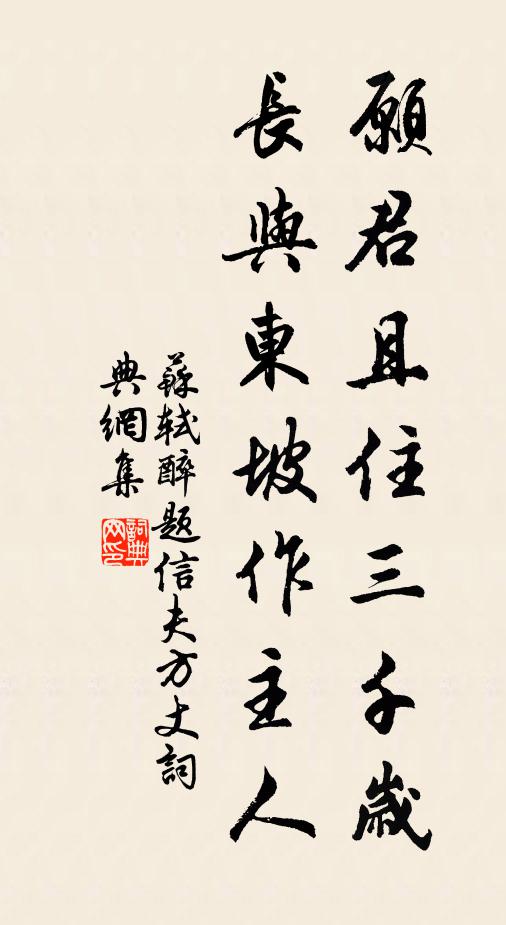 願君且住三千歲
長與東坡作主人
蘇軾醉題信夫方丈詞
典網集
詞典网印